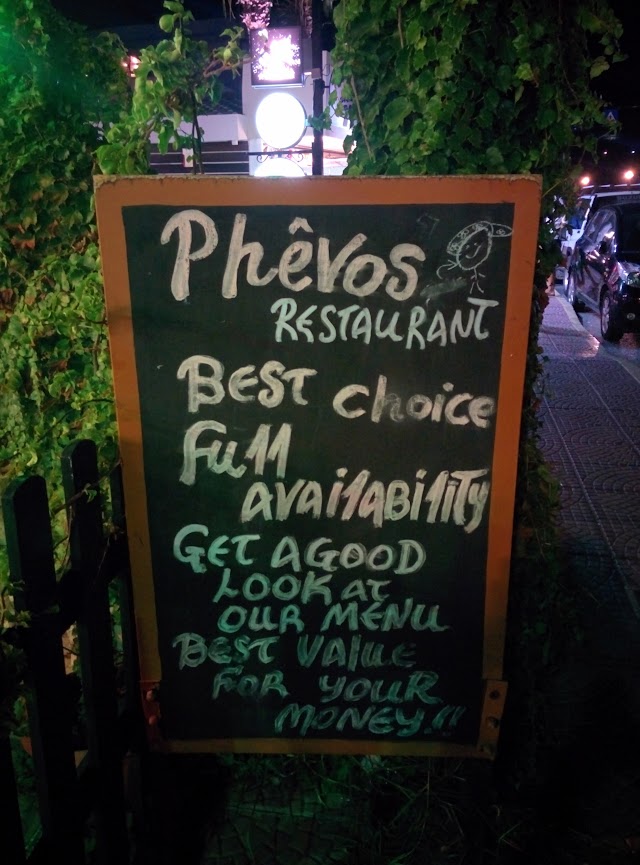 Phêvos
RESTAURANT
BEST choice
Full
availability
GET A GOOD
LOOK at
OUR MENU
BEST Value
FOR YOUR
MONEY!!